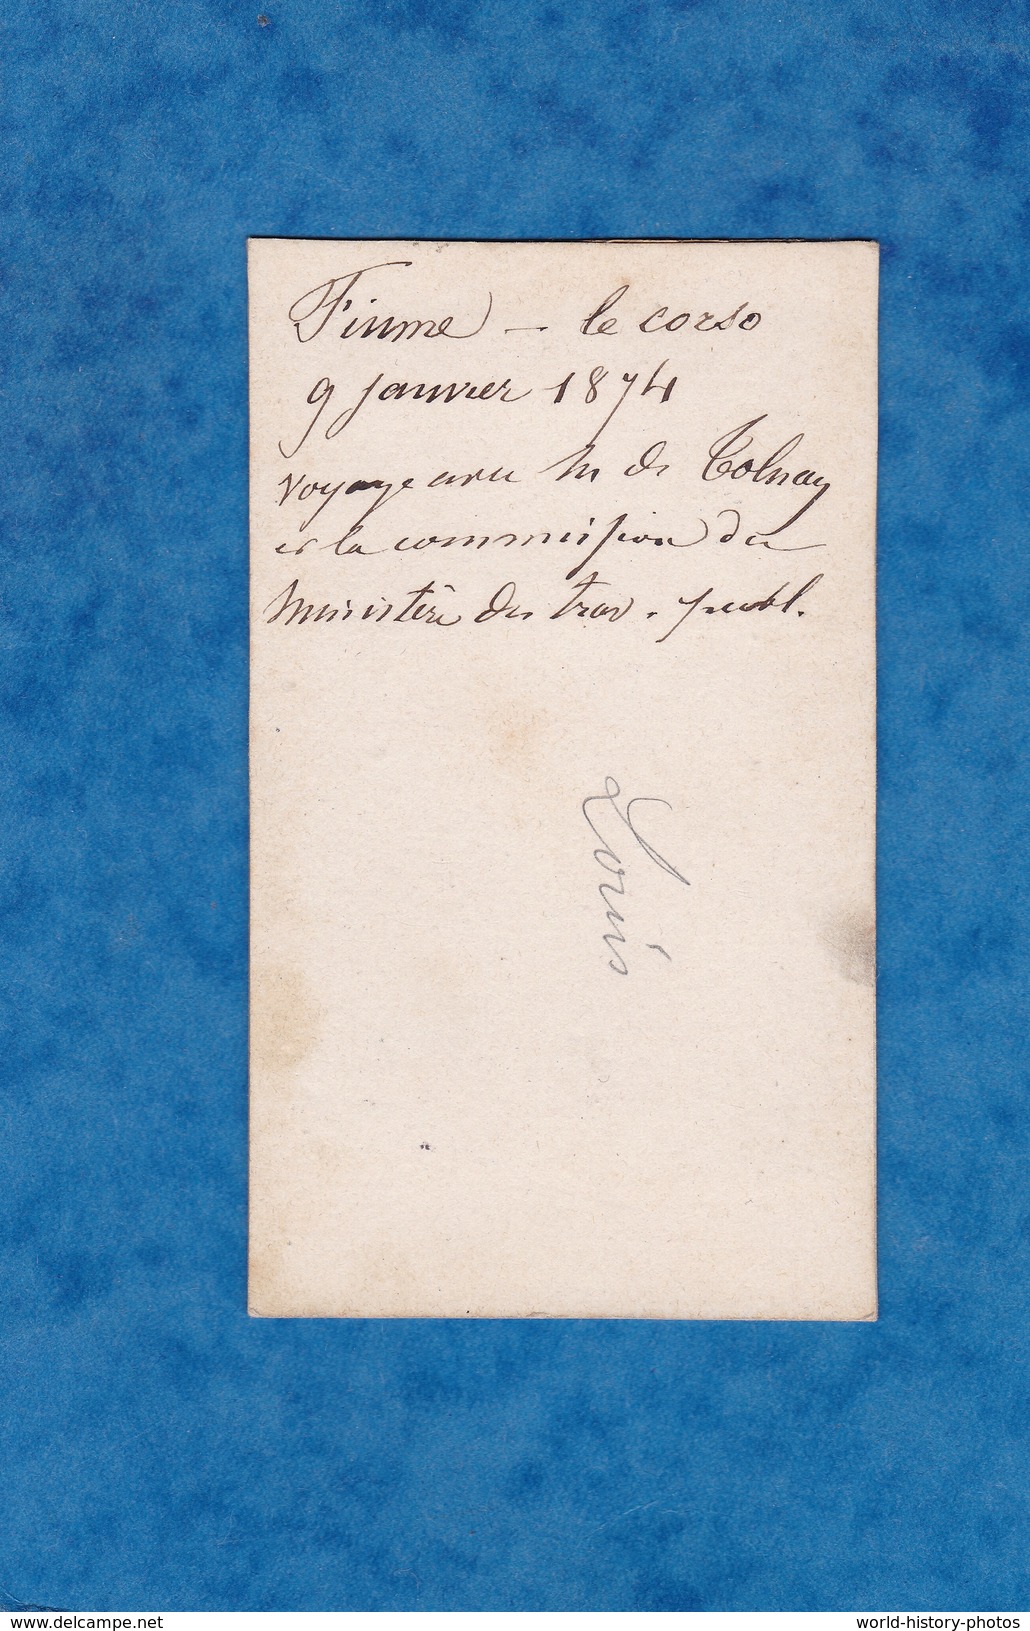 Fiume – le corso
9 janvier 1874
voyage avec M de Tolnay
et la commission du
Ministère des trav. publ.
Louis
delcampe.net
world-history-photos